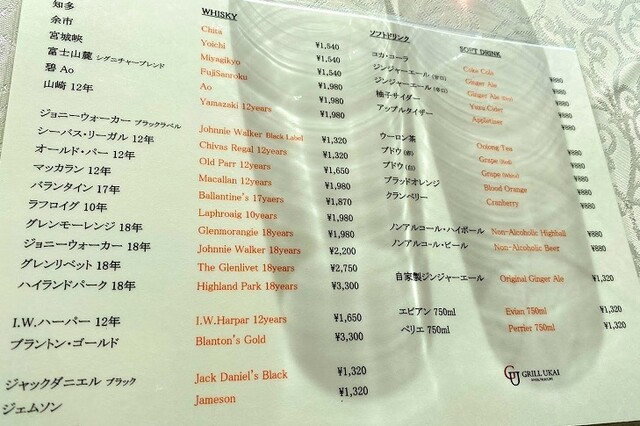 WHISKY
知多 Chita ¥1,540
余市 Yoichi ¥1,540
宮城峡 Miyagikyo ¥1,540
富士山麓 シグニチャーブレンド FujiSanroku ¥1,980
碧 Ao Ao ¥1,980
山崎 12年 Yamazaki 12years ¥1,980
ジョニーウォーカー ブラックラベル Johnnie Walker Black Label ¥1,320
シーバス・リーガル 12年 Chivas Regal 12years ¥1,320
オールド・パー 12年 Old Parr 12years ¥1,650
マッカラン 12年 Macallan 12years ¥1,980
バランタイン 17年 Ballantine's 17yaers ¥1,870
ラフロイグ 10年 Laphroaig 10years ¥1,980
グレンモーレンジ 18年 Glenmorangie 18years ¥1,980
ジョニーウォーカー 18年 Johnnie Walker 18years ¥2,200
グレンリベット 18年 The Glenlivet 18years ¥2,750
ハイランドパーク 18年 Highland Park 18years ¥3,300
I.W.ハーパー 12年 I.W.Harpar 12years ¥1,650
ブラントン・ゴールド Blanton's Gold ¥3,300
ジャックダニエル ブラック Jack Daniel's Black ¥1,320
ジェムソン Jameson ¥1,320
ソフトドリンク SOFT DRINK
コカ・コーラ Coka Cola ¥880
ジンジャーエール (甘口) Ginger Ale ¥880
ジンジャーエール (辛口) Ginger Ale ¥880
柚子サイダー Yuzu Cider ¥880
アップルタイザー Appletizer ¥880
ウーロン茶 Oolong Tea ¥880
ブドウ (赤) Grape (Red) ¥880
ブドウ (白) Grape (White) ¥880
ブラッドオレンジ Blood Orange ¥880
クランベリー Cranberry ¥880
ノンアルコール・ハイボール Non-Alcoholic Highball ¥880
ノンアルコール・ビール Non-Alcoholic Beer ¥880
自家製ジンジャーエール Original Ginger Ale ¥1,320
エビアン 750ml Evian 750ml ¥1,320
ペリエ 750ml Perrier 750ml ¥1,320
GU GRILL UKAI